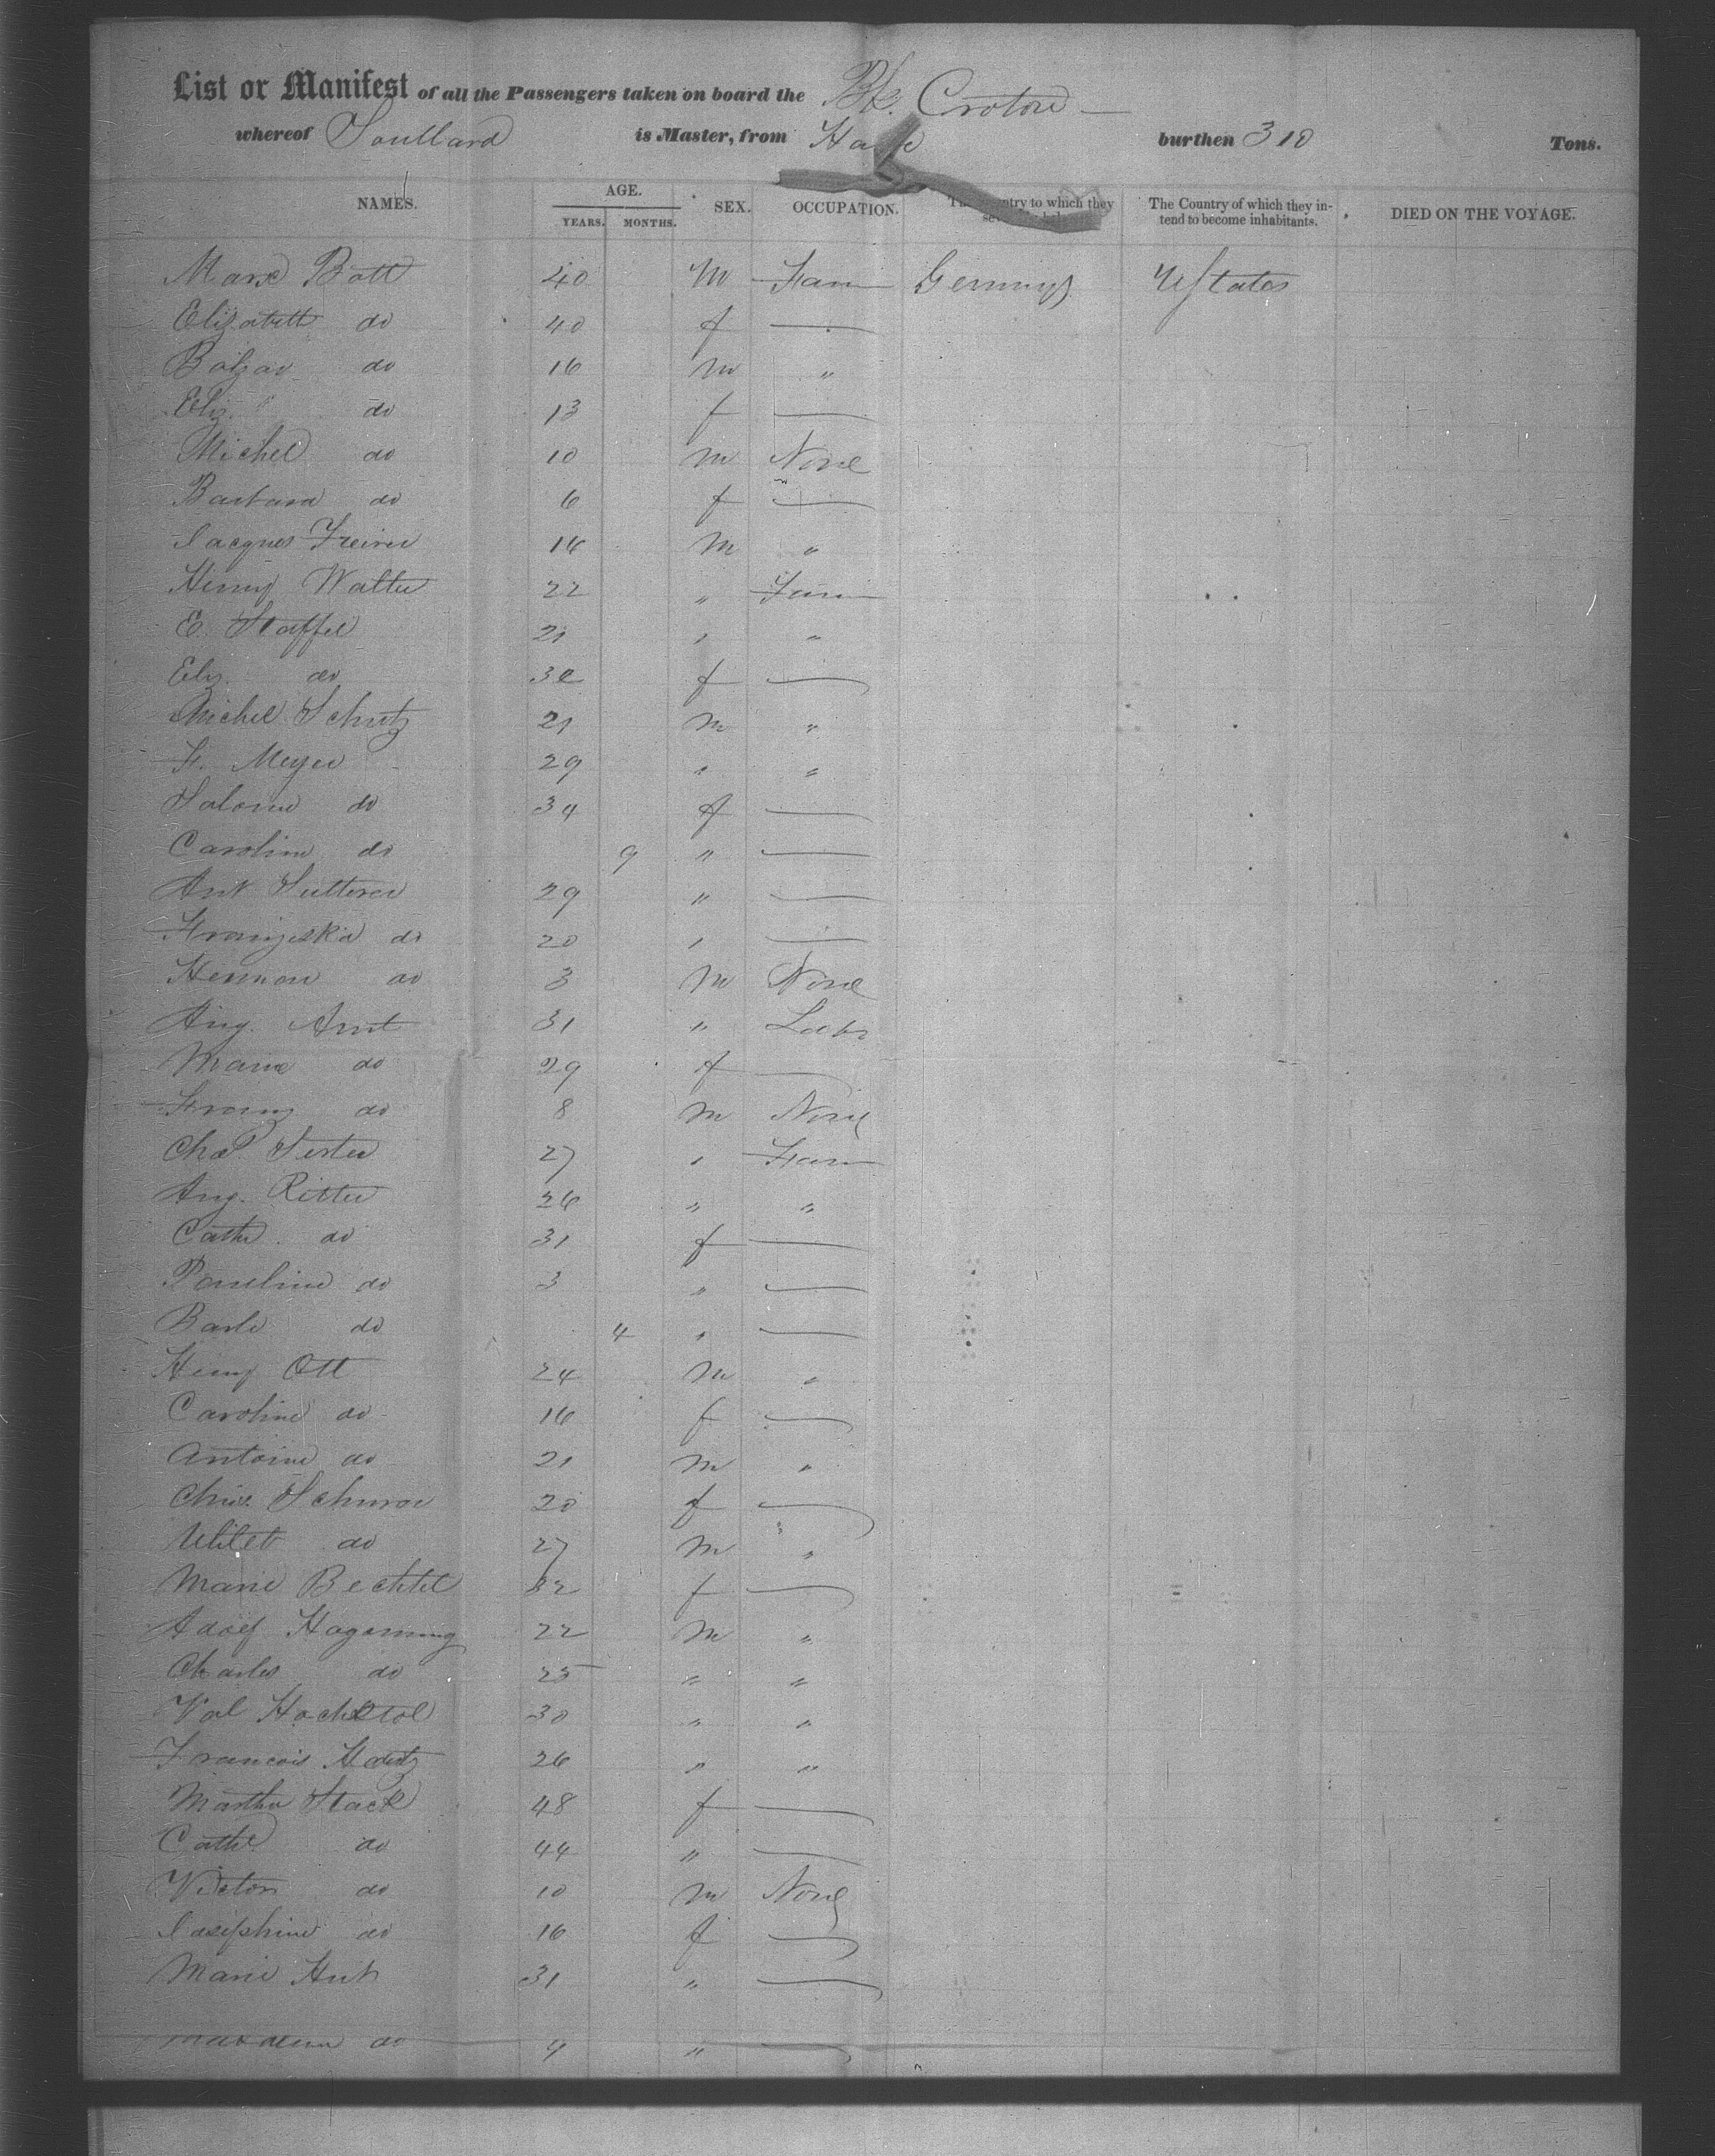 List or Manifest of all the Passengers taken on board the Bk. Croton
whereof Soullard is Master, from burthen 310 Tons.
NAMES. AGE. YEARS. MONTHS. SEX. OCCUPATION. The Country to which they The Country of which they intend to become inhabitants. DIED ON THE VOYAGE.
Marx Bott 40 M Farm Germany UStates
Elizabeth do 40 f —
Balzar do 16 m "
Eliz. do 13 f —
Michel do 10 m None
Barbara do 6 f —
Jacques 16 m "
Henry Walter 22 " Farm
E. Staffel 21 " "
Eliz. do 32 f —
Michel Schutz 21 m "
F. Meyer 29 " "
Salome do 34 f —
Caroline do 9 " —
Ant Sutterer 29 " —
Franziska do 20 " —
Herman do 3 m None
Aug. Arnt 31 " Labr
Marie do 29 f —
Franz do 8 m None
Chas. 27 " Farm
Aug. Ritter 26 " "
Cathe do 31 f —
Pauline do 3 " —
do 4 " —
Henry Ott 24 m "
Caroline do 16 f —
Antoine do 21 m "
Chris. 20 f —
do 27 m "
Marie Bechtel 32 f —
Adolf 22 m "
Charles do 25 " "
Val 30 " "
Francois 26 " "
Martha Stack 48 f —
Cathe do 44 " —
Victor do 10 m None
Josephine do 16 f —
Marie 31 " —
do 9 " —